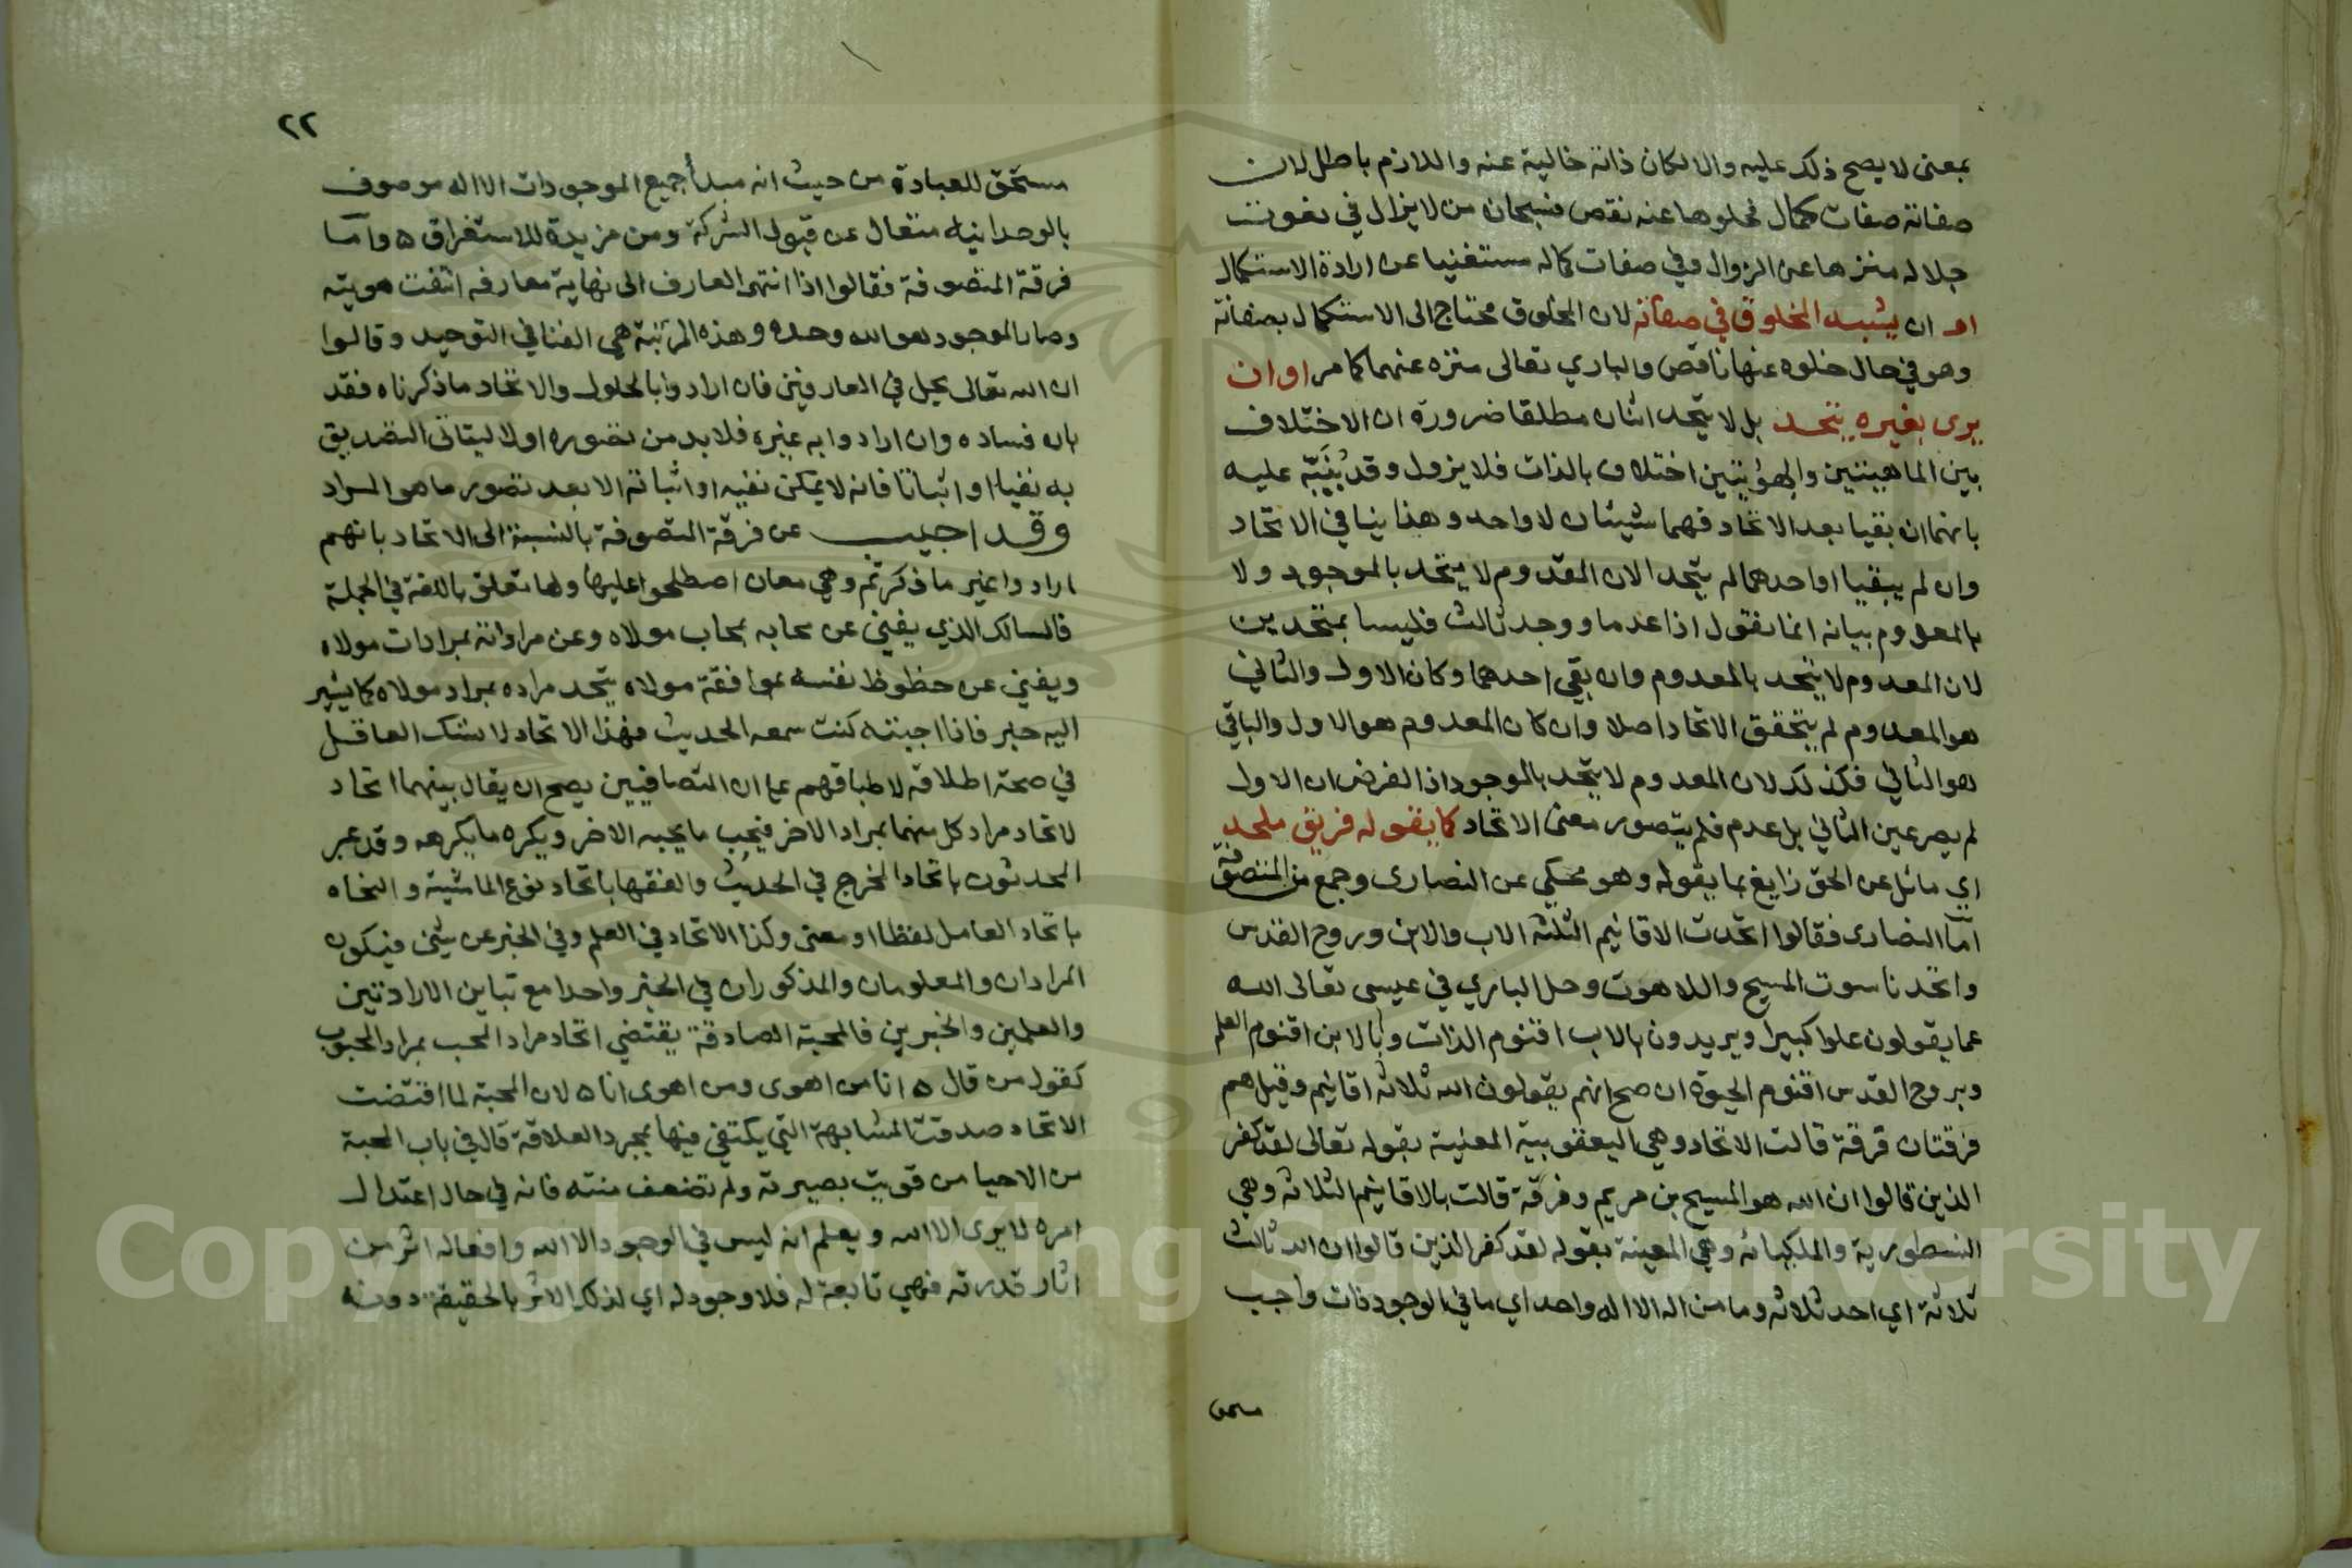 بمعنى لا يصح ذلك عليه والا لكان ذاته خالية عنه واللازم باطل لان
صفاته صفات كمال فخلوها عنه نقص فسبحان من لا يزال في نعوت
جلاله منزها عن الزوال وفي صفات كماله مستغنيا عن ارادة الاستكمال
او ان يشبه المخلوق في صفاته لان المخلوق محتاج الى الاستكمال بصفاته
وهو في حال خلوه عنها ناقص والباري تعالى منزه عنهما كما مر او ان
يرى بغيره يتحد بل لا يتحد اثنان مطلقا ضرورة ان الاختلاف
بين الماهيتين والهويتين اختلاف بالذات فلا يزول وقد يُنَبّه عليه
بانهما ان بقيا بعد الاتحاد فهما شيئان لا واحد وهذا ينافي الاتحاد
وان لم يبقيا او احدهما لم يتحد الان المعدوم لا يتحد بالموجود ولا
بالمعدوم بيانه انما نقول اذا عدما ووجد ثالث فليسا بمتحدين
لان المعدوم لا يتحد بالمعدوم وان بقي احدهما وكان الاول والثاني
هو المعدوم لم يتحقق الاتحاد اصلا وان كان المعدوم هو الاول والباقي
هو الثاني فكذلك لان المعدوم لا يتحد بالموجود اذ الفرض ان الاول
لم يصر عين الثاني بل عدم فلم يتصور معنى الاتحاد كما يقوله فريق ملحد
اي مائل عن الحق زايغ بما يقوله وهو محكي عن النصارى وجمع من المتصوفة
اما النصارى فقالوا اتحدت الاقانيم الثلثه الاب والابن وروح القدس
واتحد ناسوت المسيح واللاهوت وحل الباري في عيسى تعالى الله
عما يقولون علوا كبيرا ويريدون بالاب اقنوم الذات وبالابن اقنوم العلم
وبروح القدس اقنوم الحيوة ان صح انهم يقولون الله ثلاثه اقانيم وقيل هم
فرقتان فرقة قالت الاتحاد وهي اليعقوبية المعنية بقوله تعالى لقد كفر
الذين قالوا ان الله هو المسيح بن مريم وفرقة قالت بالاقانيم الثلاثه وهي
النسطورية والملكيائه وهي المعينة بقوله لقد كفر الذين قالوا ان الله ثالث
ثلاثة اي احد ثلاثه وما من اله الا اله واحد اي ما في الوجود ذات واجب
مستحق
٢٢
مستحق للعبادة من حيث انه مبدأ جميع الموجودات الا اله موصوف
بالوحدانيه متعال عن قبول الشركة ومن مزيدة للاستغراق ه واما
فرقة المتصوفة فقالوا اذا انتهى العارف الى نهاية معارفه انتفت هويته
وصار الموجود هو الله وحده وهذه المرتبة هي الفنا في التوحيد وقالوا
ان الله تعالى يحل في العارفين فان ارادوا بالحلول والاتحاد ما ذكرناه فقد
بان فساده وان ارادوا به غيره فلا بد من تصوره اولا ليتاتى التصديق
به نفيا او اثباتا فانه لا يمكن نفيه او اثباته الا بعد تصور ما هو المراد
وقد اجيب عن فرقة المتصوفة بالنسبة الى الاتحاد بانهم
ارادوا غير ما ذكرتم وهي معان اصطلحوا عليها ولها تعلق باللغة في الجملة
فالسالك الذي يفني عن محابه بمحاب مولاه وعن مراداته بمرادات مولاه
ويفني عن حظوظ نفسه بموافقة مولاه يتحد مراده بمراد مولاه كما يشير
اليه خبر فاذا احببته كنت سمعه الحديث فهذا الاتحاد لا يشك العاقل
في صحة اطلاقه لاطباقهم على ان المتصافيين يصح ان يقال بينهما اتحاد
لاتحاد مراد كل منهما بمراد الاخر فيحب ما يحبه الاخر ويكره ما يكرهه وقد عبر
المحدثون باتحاد المخرج في الحديث والفقها باتحاد نوع الماشية والنحاه
باتحاد العامل لفظا او معنى وكذا الاتحاد في العلم وفي الخبر عن شئ فيكون
المرادان والمعلومان والمذكوران في الخبر واحدا مع تباين الارادتين
والعلمين والخبرين فالمحبة الصادقة يقتضي اتحاد مراد المحب بمراد المحبوب
كقول من قال ه انا من اهوى ومن اهوى انا ه لان المحبة لما اقتضت
الاتحاد صدقت المشابهة التي يكتفي فيها بمجرد العلاقة قال في باب المحبة
من الاحيا من قويت بصيرته ولم تضعف منته فانه في حال اعتدال
امره لا يرى الا الله ويعلم انه ليس في الوجود الا الله وافعاله اثر من
اثار قدرته فهي تابعة له فلا وجود له اي لذلك الاثر بالحقيقة دونه
Copyright © King Saud University